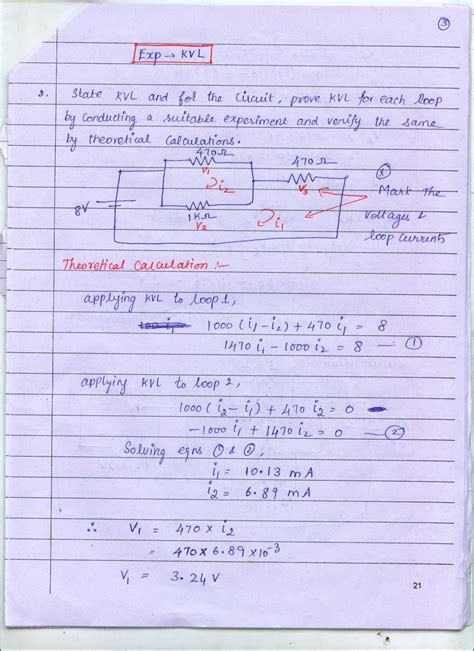 3
Exp → KVL
2. State KVL and for the circuit, prove KVL for each loop
by conducting a suitable experiment and verify the same
by theoretical calculations.
470Ω
V1
i2
470Ω
V3
8V
1KΩ
V2
i1
Mark the
voltages &
loop currents
Theoretical Calculation :-
applying KVL to loop 1,
1000 (i1-i2) + 470 i1 = 8
1470 i1 - 1000 i2 = 8 — 1
applying KVL to loop 2,
1000 (i2 - i1) + 470 i2 = 0
-1000 i1 + 1470 i2 = 0 — 2
Solving eqns 1 & 2,
i1 = 10.13 mA
i2 = 6.89 mA
∴ V1 = 470 x i2
= 470 x 6.89 x10-3
V1 = 3.24 V
21